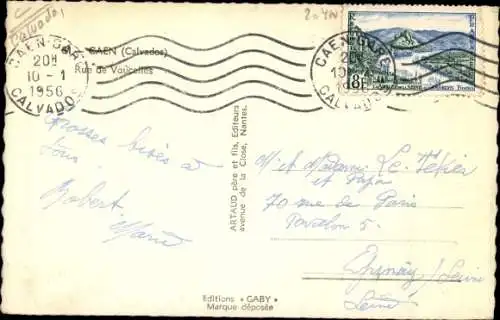 Calvados
CAEN-GARE
20H
10-1
1956
CALVADOS
CAEN (Calvados)
Rue de Vaucelles
CAEN-GARE
20H
1956
CALVADOS
8F
Grosses bises à
tous
Robert
Marie
ARTAUD père et fils, Editeurs
avenue de la Close, Nantes.
Mr et Madame Le
et Papa
70 rue de Paris
Pavillon 5
Epinay / Seine
Seine
Editions « GABY »
Marque déposée